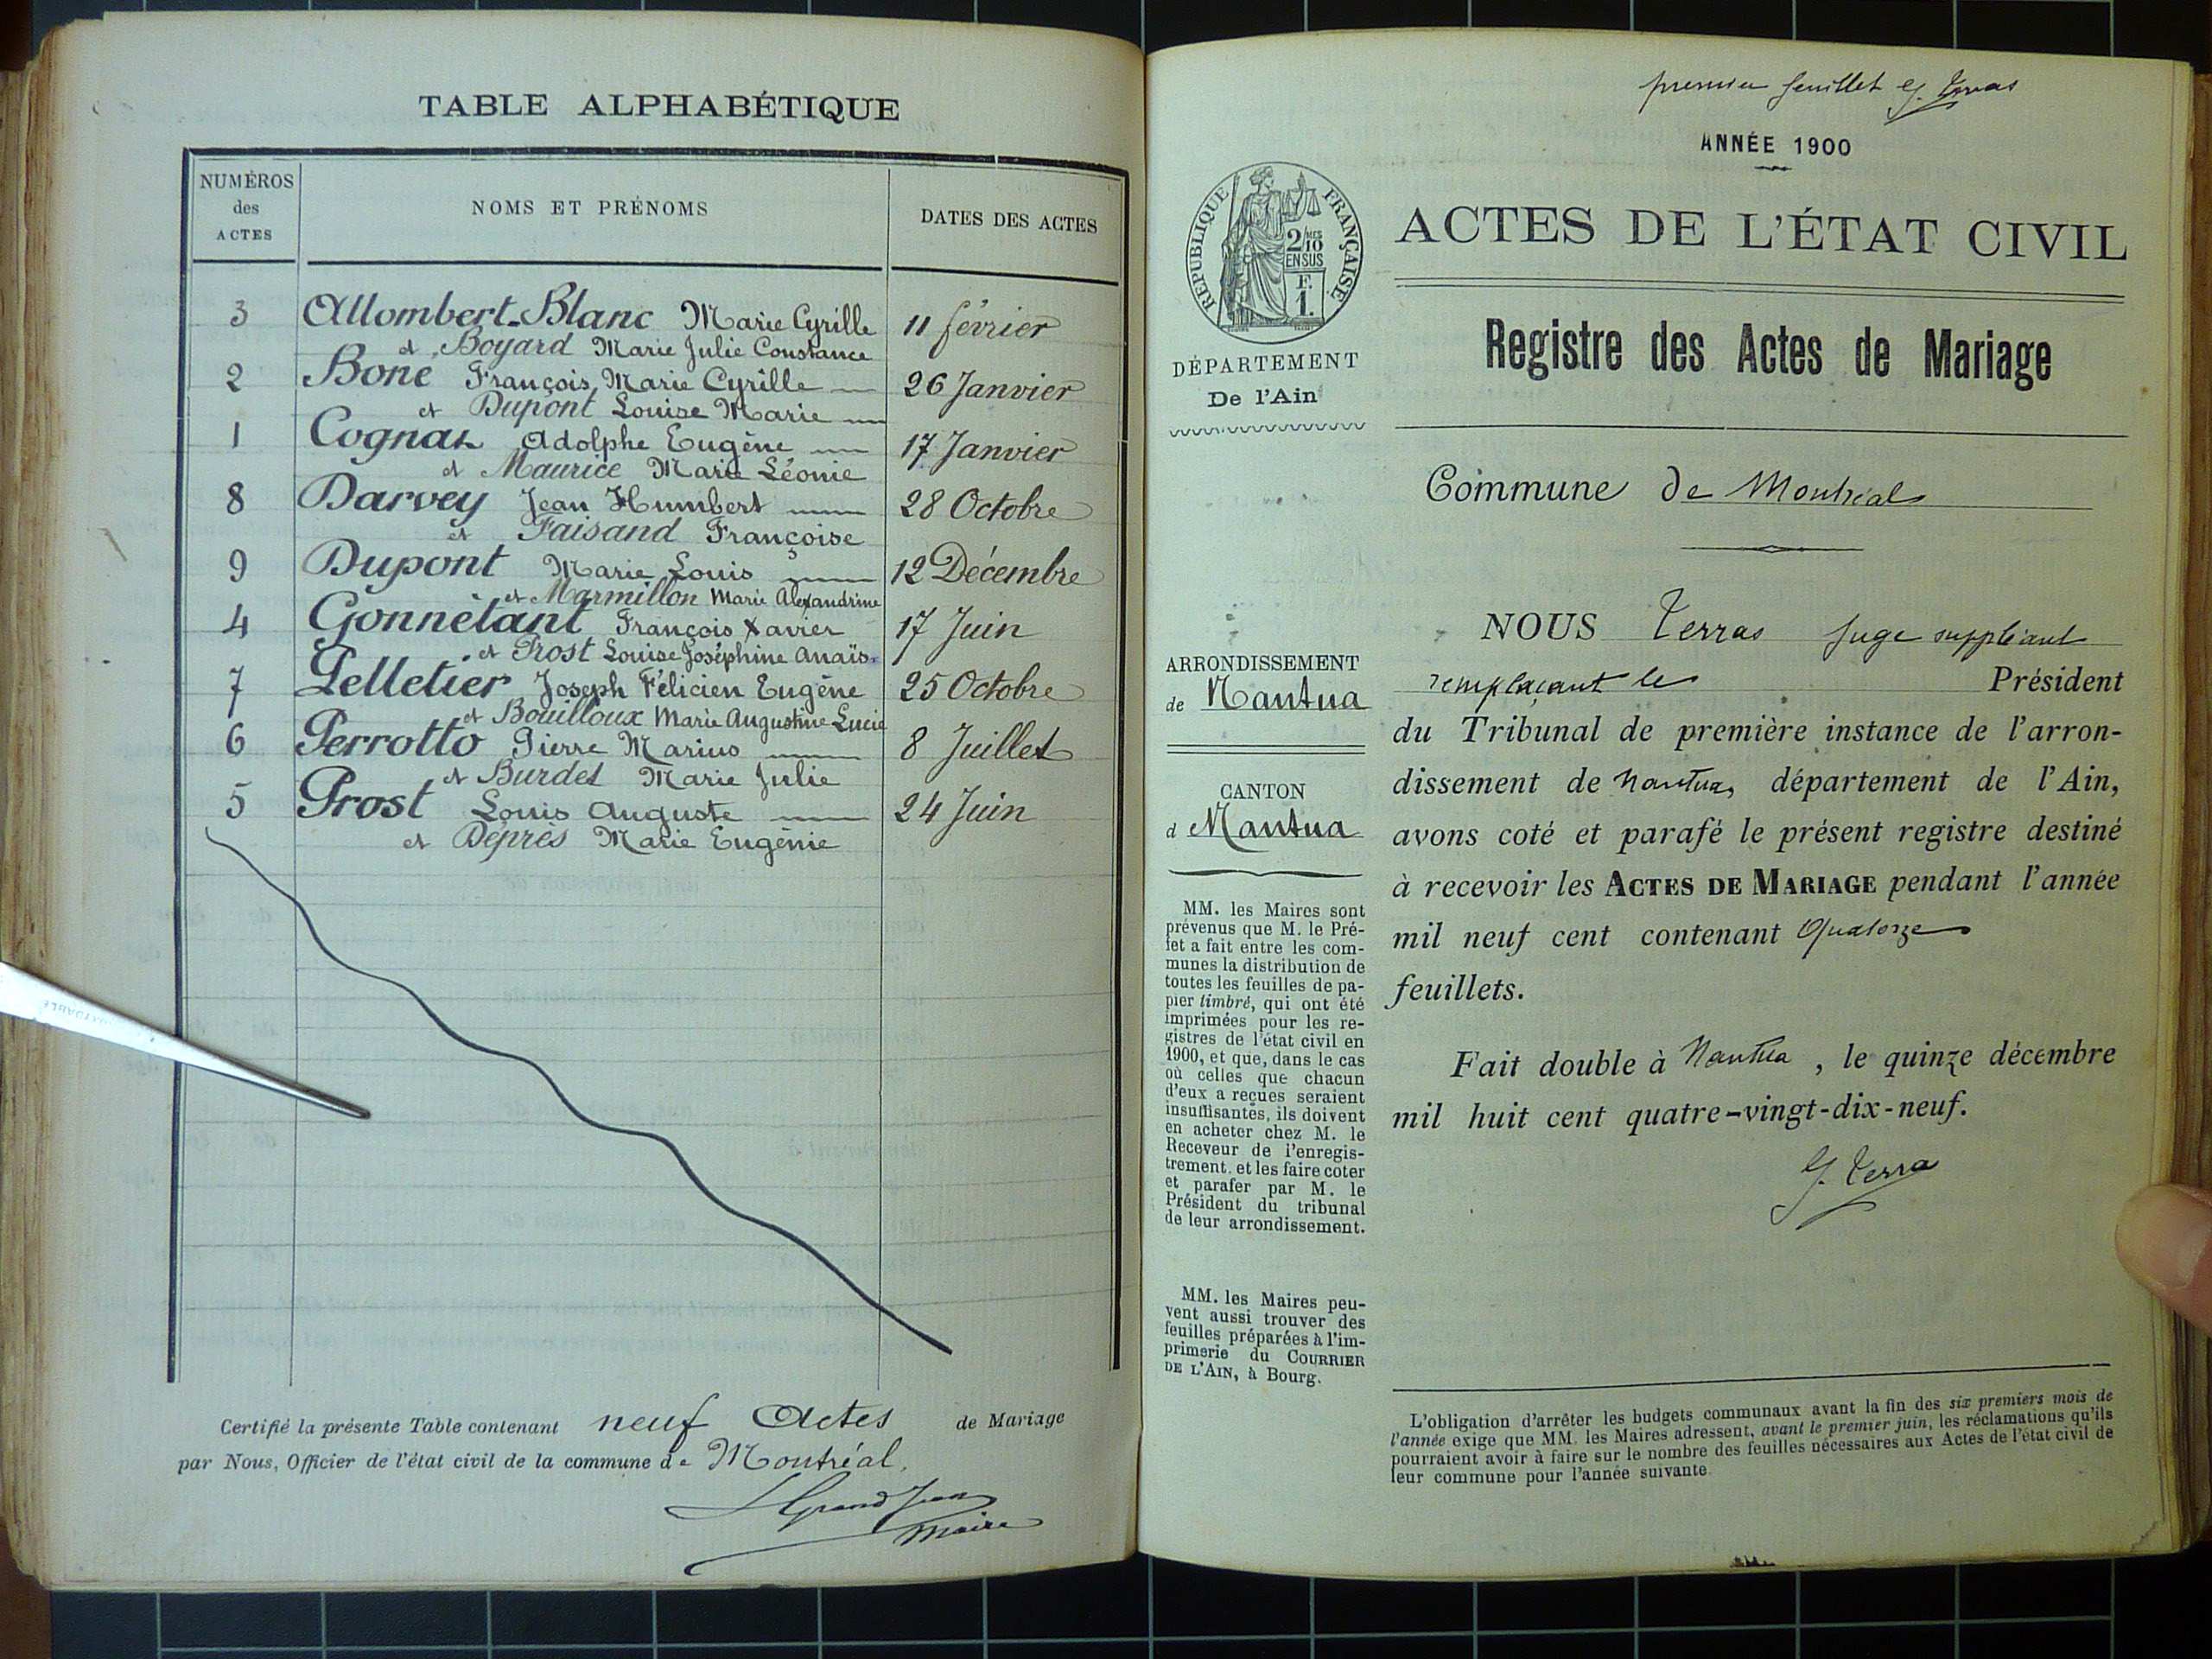 TABLE ALPHABÉTIQUE
NUMÉROS
des
ACTES
NOMS ET PRÉNOMS
DATES DES ACTES
3 Allombert-Blanc Marie Cyrille 11 février
et Boyard Marie Julie Constance
2 Bone François Marie Cyrille 26 Janvier
et Dupont Louise Marie
1 Cognat Adolphe Eugène 17 Janvier
et Maurice Marie Léonie
8 Darvey Jean Humbert 28 Octobre
et Faisand Françoise
9 Dupont Marie Louis 12 Décembre
et Marmillon Marie Alexandrine
4 Gonnetant François Xavier 17 Juin
et Prost Louise Joséphine Anaïs
7 Pelletier Joseph Félicien Eugène 25 Octobre
et Bouilloux Marie Augustine Lucie
6 Perrotto Pierre Marius 8 Juillet
et Burdet Marie Julie
5 Prost Louis Auguste 24 Juin
et Déprès Marie Eugénie
Certifié la présente Table contenant neuf Actes de Mariage
par Nous, Officier de l'état civil de la commune de Montréal.
L Grand Jean
Maire
premier feuillet G. Terras
ANNÉE 1900
RÉPUBLIQUE FRANÇAISE
2/10
MES
EN SUS
F.
1.
ACTES DE L'ÉTAT CIVIL
Registre des Actes de Mariage
DÉPARTEMENT
De l'Ain
Commune de Montréal
ARRONDISSEMENT
de Nantua
CANTON
d Nantua
MM. les Maires sont
prévenus que M. le Pré-
fet a fait entre les com-
munes la distribution de
toutes les feuilles de pa-
pier timbré, qui ont été
imprimées pour les re-
gistres de l'état civil en
1900, et que, dans le cas
où celles que chacun
d'eux a reçues seraient
insuffisantes, ils doivent
en acheter chez M. le
Receveur de l'enregis-
trement. et les faire coter
et parafer par M. le
Président du tribunal
de leur arrondissement.
MM. les Maires peu-
vent aussi trouver des
feuilles préparées à l'im-
primerie du COURRIER
DE L'AIN, à Bourg.
NOUS Terras Juge suppléant
remplaçant le Président
du Tribunal de première instance de l'arron-
dissement de Nantua, département de l'Ain,
avons coté et parafé le présent registre destiné
à recevoir les ACTES DE MARIAGE pendant l'année
mil neuf cent contenant Quatorze
feuillets.
Fait double à Nantua, le quinze décembre
mil huit cent quatre-vingt-dix-neuf.
G. Terra
L'obligation d'arrêter les budgets communaux avant la fin des six premiers mois de
l'année exige que MM. les Maires adressent, avant le premier juin, les réclamations qu'ils
pourraient avoir à faire sur le nombre des feuilles nécessaires aux Actes de l'état civil de
leur commune pour l'année suivante.